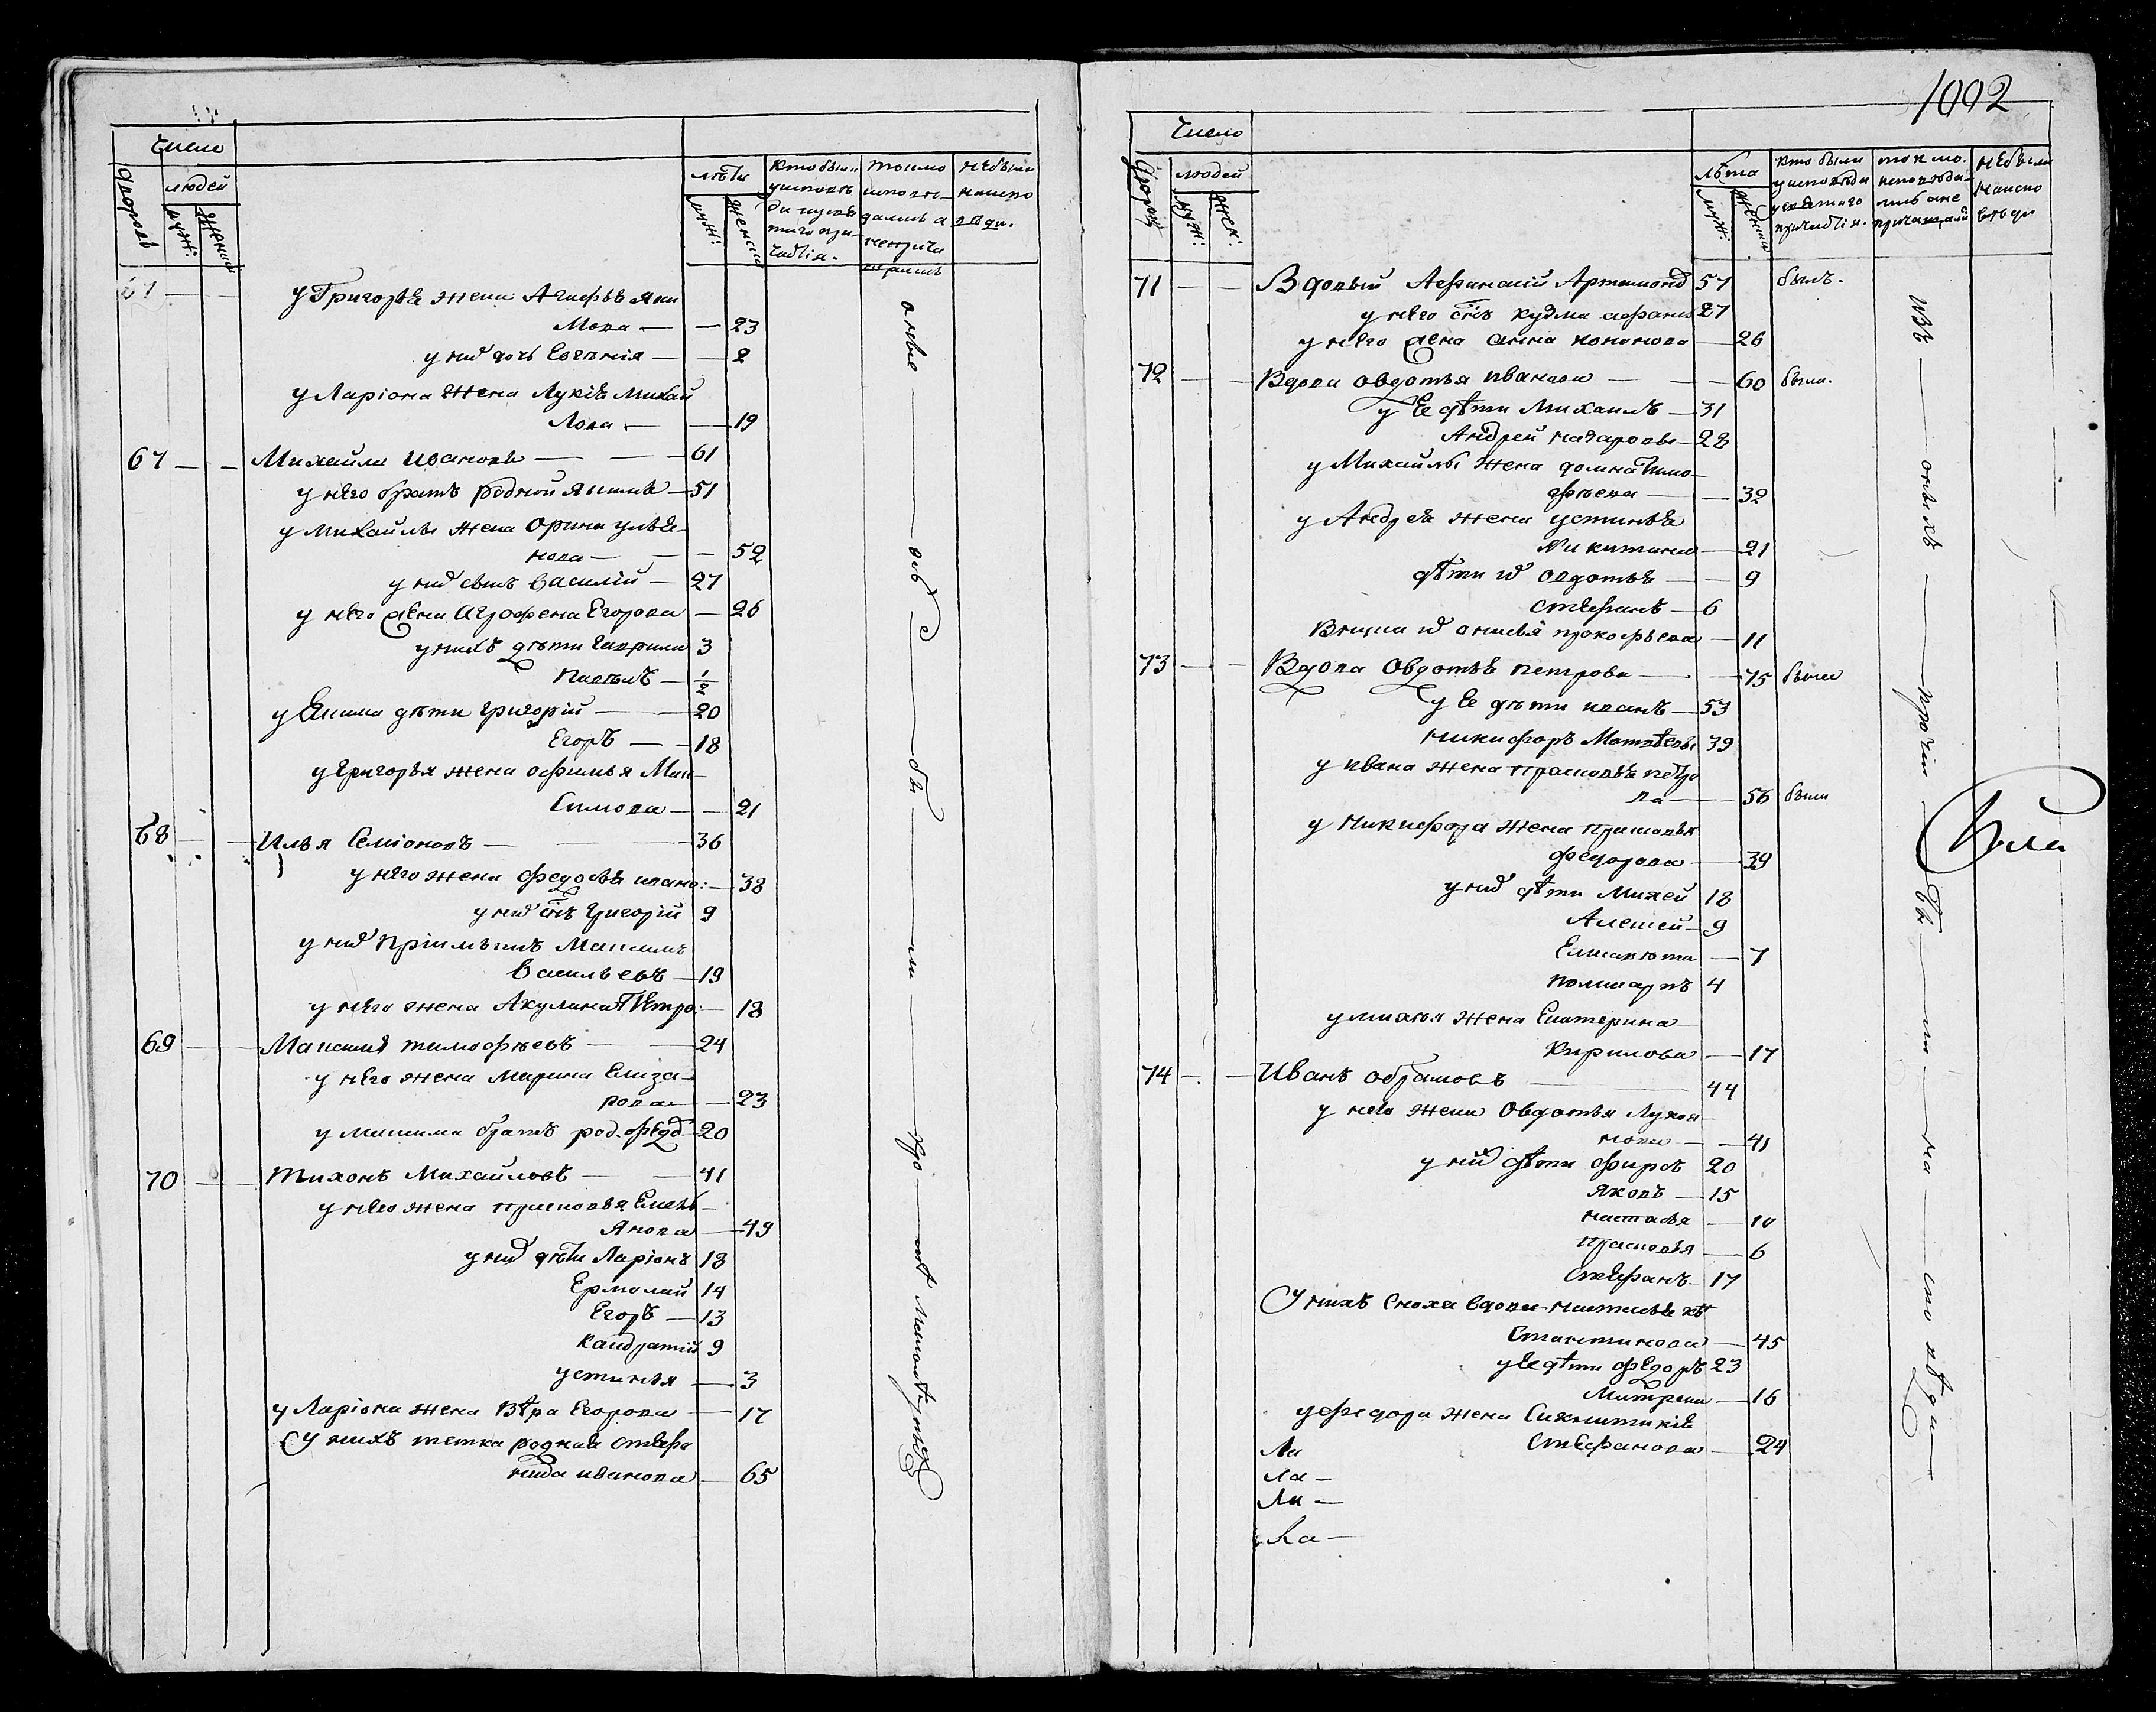 число
дворовъ
людей
муж:
женска
лѣты
муж:
женска
кто были
у исповѣ
ди и у свя
таго при-
частія.
токмо
исповѣ-
дались а
не прича
щались
не были
на испо
вѣди.
61 — —
у Григорья жена Агафья Яки
мова — — 23
у них дочь Евгенія — — 2
у Ларіона жена Лукія Михай
лова — — 19
67 — — Михайла Ивановъ — — 61
у него братъ родной Якимъ — 51
у Михайлы жена Орина улья-
нова — — — 52
у них сынъ Василій — 27
у него жена Аграфена Егорова — 26
у нихъ дѣти Гаврила 3
Павелъ — 1/2
у Якима дѣти григорій — 20
Егоръ — — 18
у Григорья жена офимья Мак-
симова — — 21
68 — — Илья Семіоновъ — — 36
у него жена федосья ивано: — 38
у них снъ Григорій 9
у них пріимышъ Максимъ
Васильевъ — 19
у него жена Акулина Петро: — 18
69 — — Максимъ тимофѣевъ — — 24
у него жена Марина Елиза-
рова — — 23
у максима братъ род. федо 20
70 — — Тихонъ Михайловъ — — 41
у него жена прасковья Емель-
янова — 49
у них дѣти Ларіонъ 18
Ермолай 14
Егоръ — 13
Кандратій 9
устинья — 3
у Ларіона жена Вѣра Егорова — 17
У нихъ тетка родная стефа
нида иванова — 65
оные — всѣ — бы — ли — про
1002
число
дворовъ
людей
муж:
жек:
лѣта
муж:
женска
кто были
у исповѣди
у святаго
причастія.
токмо.
исповѣда-
лись а не
причащали
не были
на испо
вѣди
71 — — Вдовый Афанасій Артамонов 57 былъ.
у него снъ кузма афанас 27
у него жена анна кононова — 26
72 — — Вдова овдотья иванова — — 60 была.
у Ее дѣти Михаилъ — 31
Андрей назаровы — 28
у Михайлы жена домна тимо-
фѣева — — 32
у Андрея жена устинья
Никитина — 21
дѣти их овдотья — — 9
стефанъ — 6
Внука их анисья прокофьева — 11
73 — — Вдова Овдотья петрова — — 75 была
у Ее дѣти иванъ — 53
никифоръ Матвѣевы 39
у ивана жена прасковья петро
ва — — 56 была
у никифора жена прасковья
федорова — — 39
у них дѣти Михей 18
Алексей — 9
Елисавета — 7
поликарпъ 4
у михея жена Екатерина
Кирилова — 17
74 — — Иванъ обрамовъ — 44
у него жена Овдотья Лукоя-
нова — — 41
у них дѣти фирсъ 20
яковъ — 15
настасья — 10
прасковья — 6
стефанъ — 17
У нихъ сноха вдова настасья кон
стантинова — 45
у Ее дѣти федоръ 23
Митреи — 16
у федора жена Синклитикія
стефанова — 24
Ла
Ла —
Ла —
Ла —
изъ — оныхъ — прочіи — бы — ли — на — испо вѣди